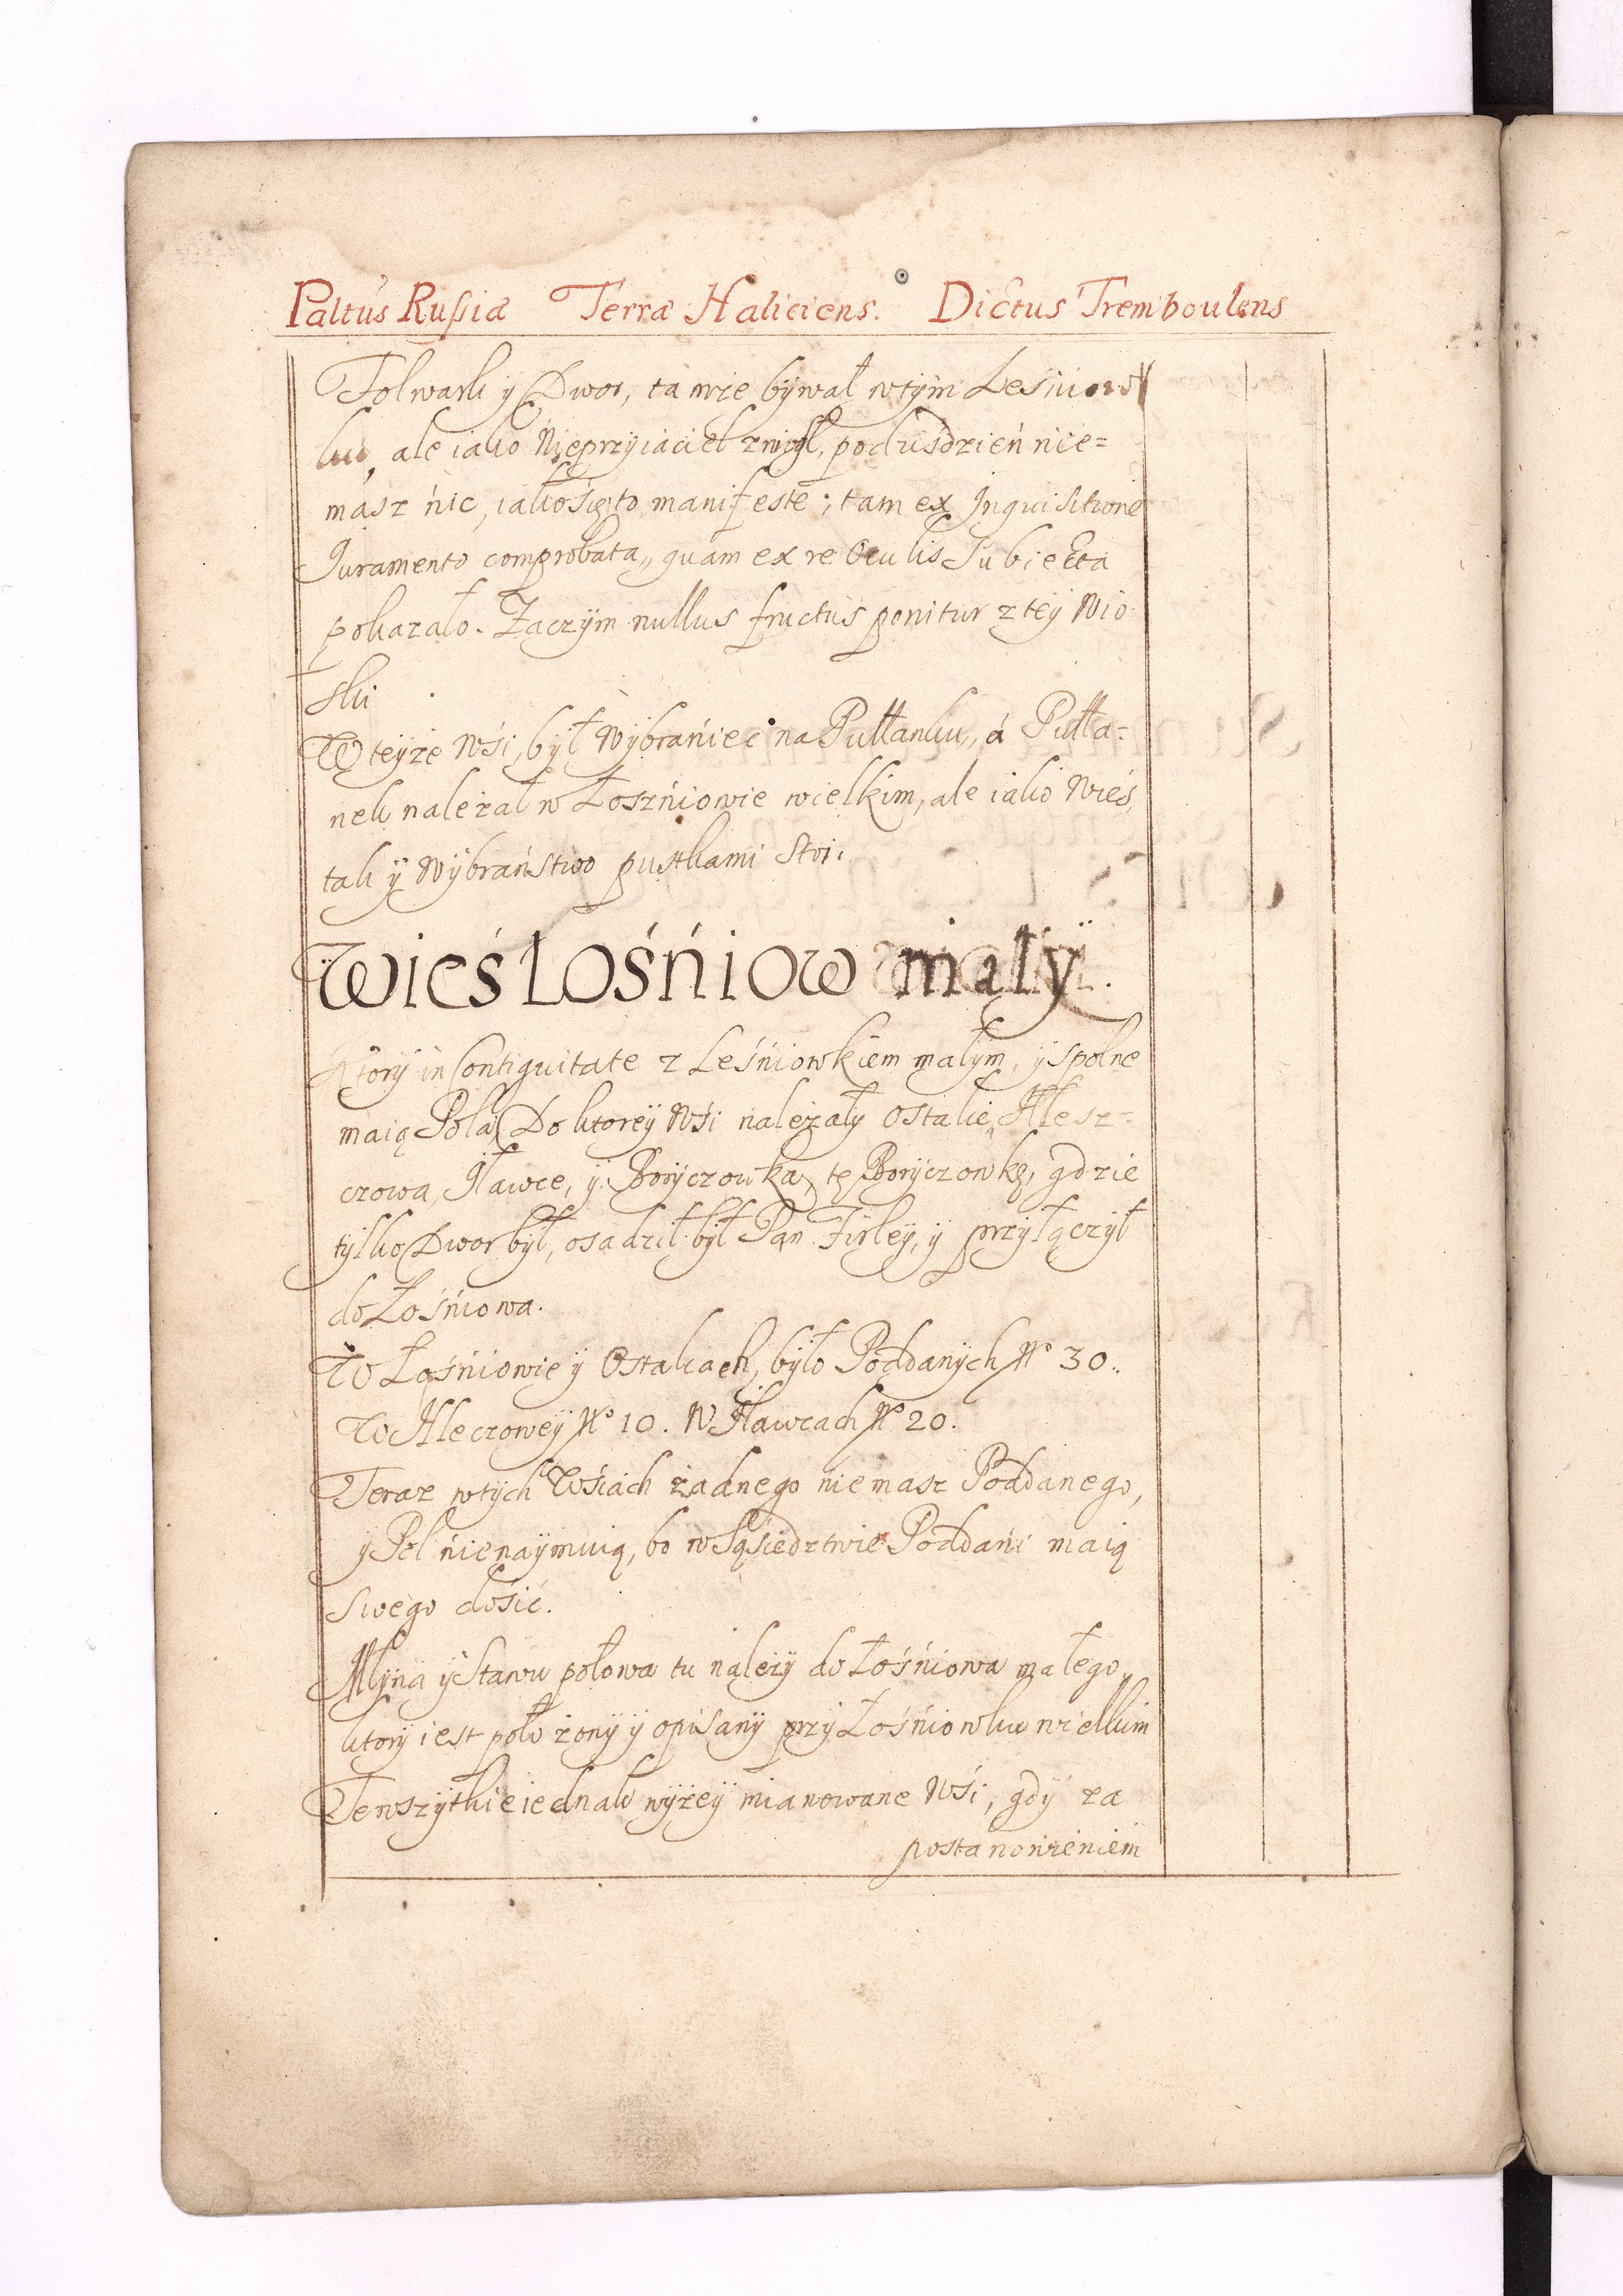 Paltus Rusiæ Terræ Haliciens. Dictus Tremboulens
Folwark y Dwor, ta wie bywał w tym Leśniow
ku, ale iako Nieprzyiaciel zniosł, podusdzień nie=
masz nic, iako się to manifeste; tam ex Inquisitione
Juramento comprobata, quam ex re Oculis Subiecta
pokazało. Zaczym nullus fructus ponitur z tey Wio
ski
W teyże Wsi, był Wybraniec na Pułłanku, á Pułła=
nek należał w Łoszniowie wielkim, ale iako Wieś,
tak y Wybraństwo pustkami stoi.
Wieś Łośniow mały.
Ktory in Contiguitate z Leśniowkiem małym, y spolne
maią Pola, Do ktorey Wsi należały Ostalie, Mlesz=
czowa, Iławce, y Boryczowka, tę Boryczowkę, gdzie
tylko Dwor był, osadził był Pan Firley, y przyłączył
do Łośniowa.
W Łośniowie y Ostalcach, było Poddanych No 30.
W Mleczowey No 10. W Iławcach No 20.
Teraz w tych Wsiach żadnego nie masz Poddanego,
y Pol nie naymuią, bo w Sąsiedztwie Poddani maią
swego dosić.
Młyna y Stawu połowa tu należy do Łośniowa małego,
ktory iest położony y opisany przy Łośniowku wielkim
Te wszytkie iednak wyżey mianowane Wsi, gdy za
postanowieniem